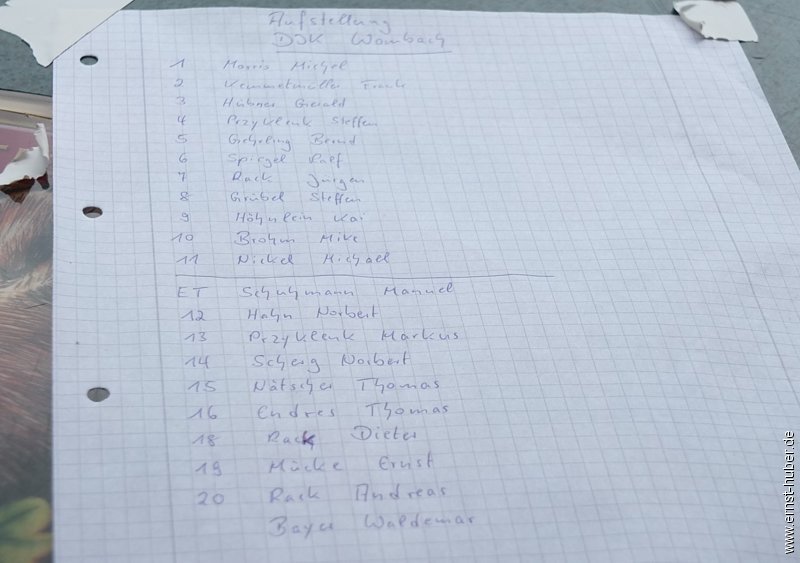 Aufstellung
DJK Wombach
1 Morris Michel
2 Kemmetmüller Frank
3 Hübner Gerald
4 Przyklenk Steffen
5 Bernd
6 Spiegel Ralf
7 Rack Jürgen
8 Grübel Steffen
9 Höhnlein Kai
10 Brohm Mike
11 Nickel Michael
ET Schuhmann Manuel
12 Hahn Norbert
13 Przyklenk Markus
14 Scherg Norbert
15 Nätscher Thomas
16 Endres Thomas
18 Rack Dieter
19 Mücke Ernst
20 Rack Andreas
Bayer Waldemar
www.ernst-huber.de